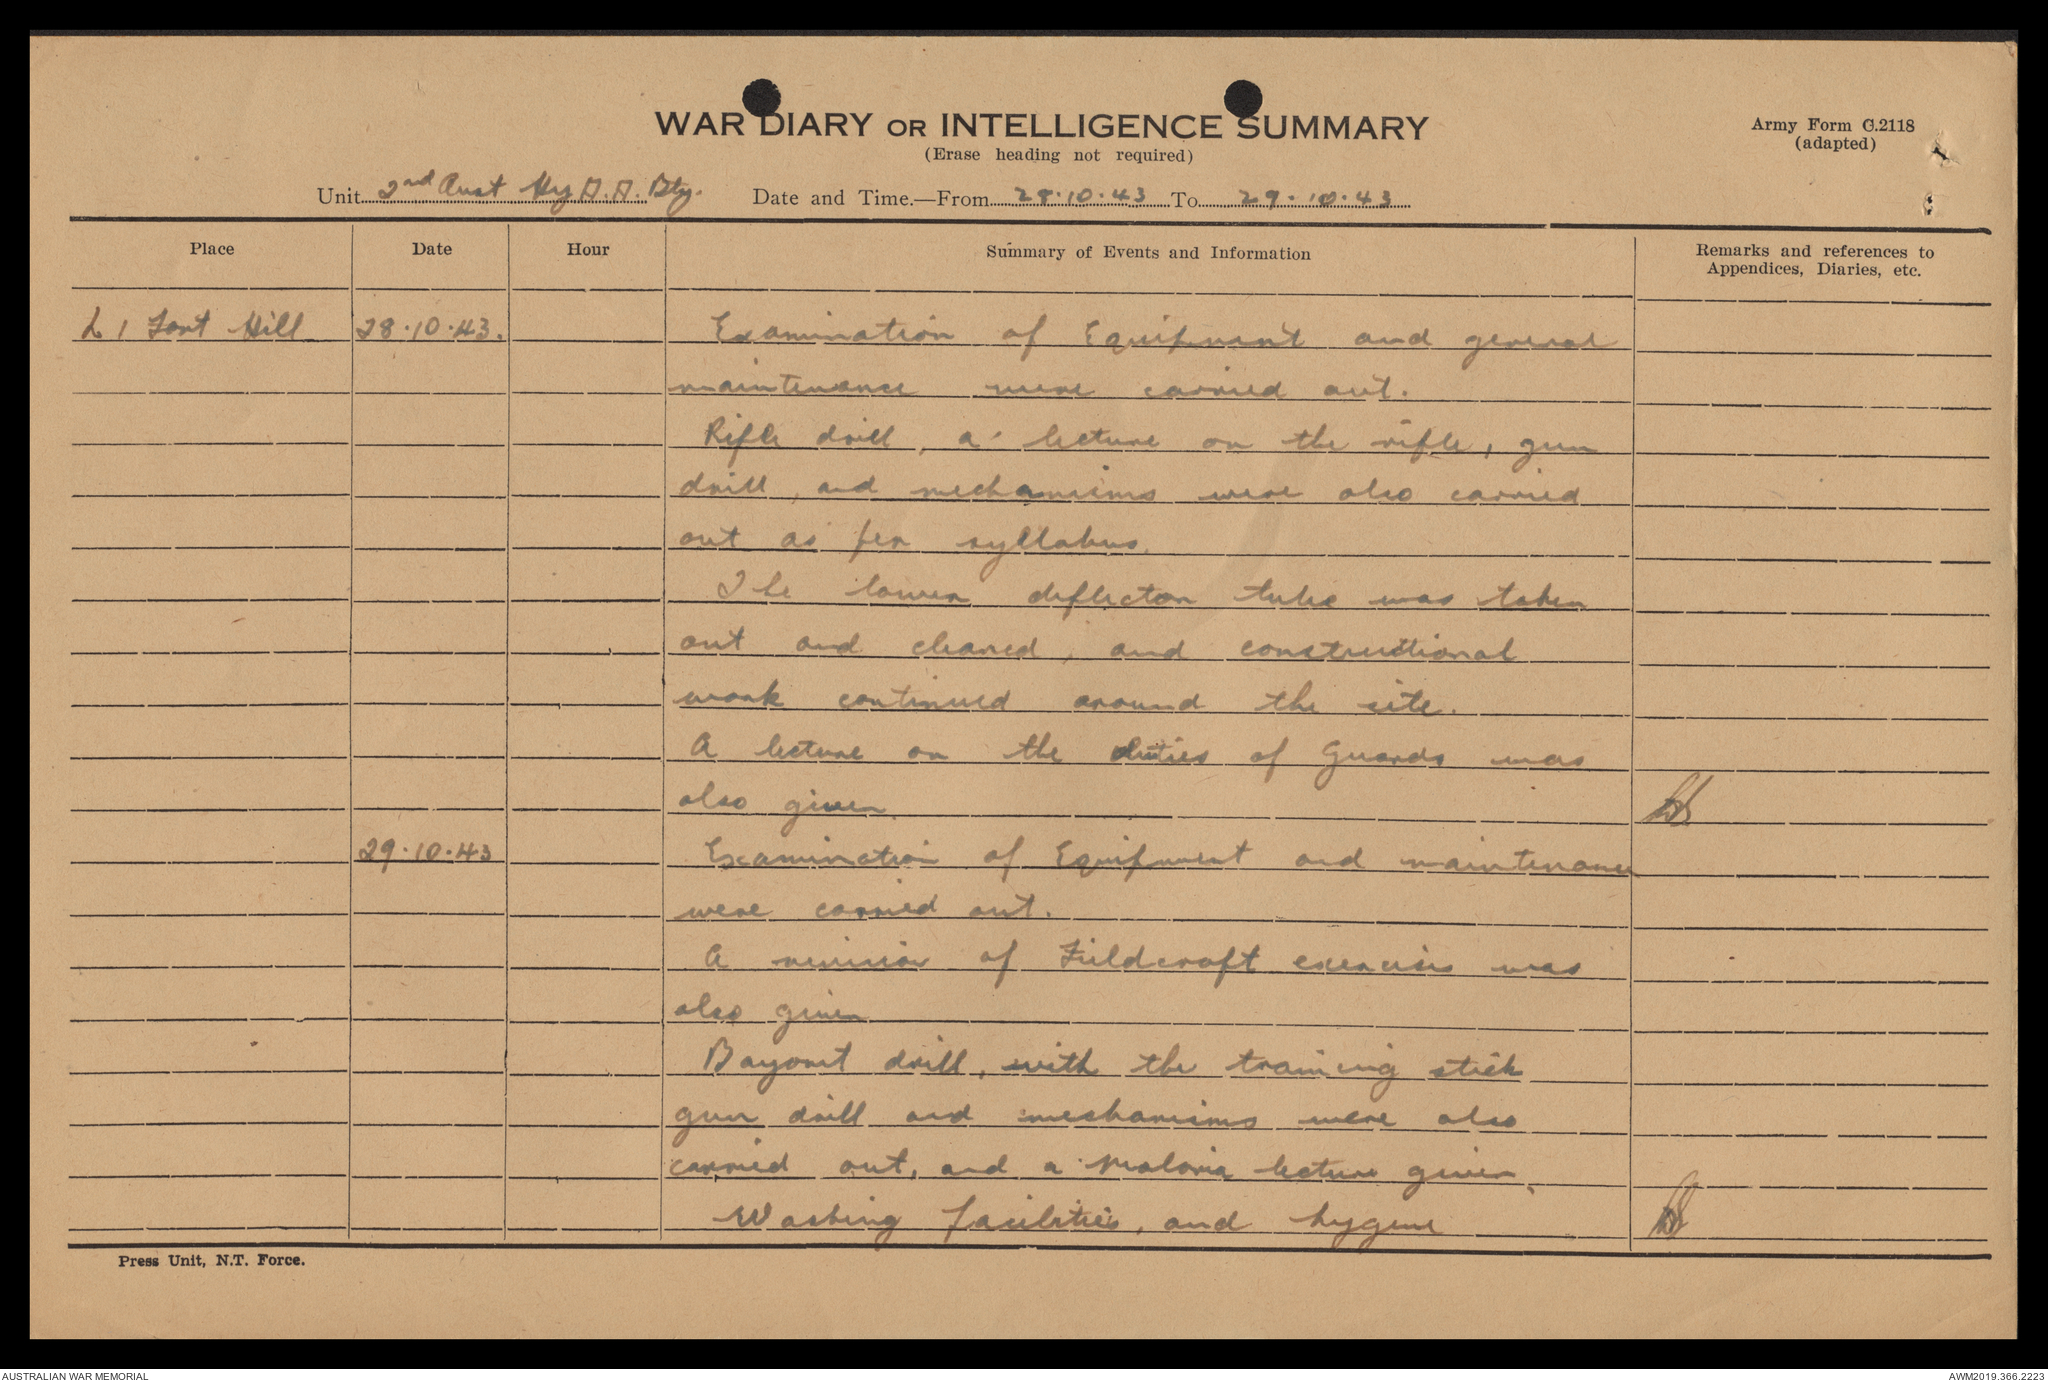 WAR DIARY OR INTELLIGENCE SUMMARY
(Erase heading not required)
Army Form C.2118
(adapted)
Unit 2nd Aust Hy A.A. Bty.
Date and Time.—From 28.10.43 To 29.10.43
Place
Date
Hour
Summary of Events and Information
Remarks and references to
Appendices, Diaries, etc.
L1 Fort Hill 28.10.43. Examination of Equipment and general
maintenance were carried out.
Rifle drill, a lecture on the rifle, gun
drill, and mechanisms were also carried
out as per syllabus.
The lower deflector tube was taken
out and cleaned, and constructional
work continued around the site.
A lecture on the duties of Guards was
also given.
29.10.43 Examination of Equipment and maintenance
were carried out.
A revision of Fieldcraft exercises was
also given
Bayonet drill, with the training stick
gun drill and mechanisms were also
carried out, and a Malaria lecture given.
Washing facilities, and hygene
Press Unit, N.T. Force.
AUSTRALIAN WAR MEMORIAL
AWM2019.366.2223